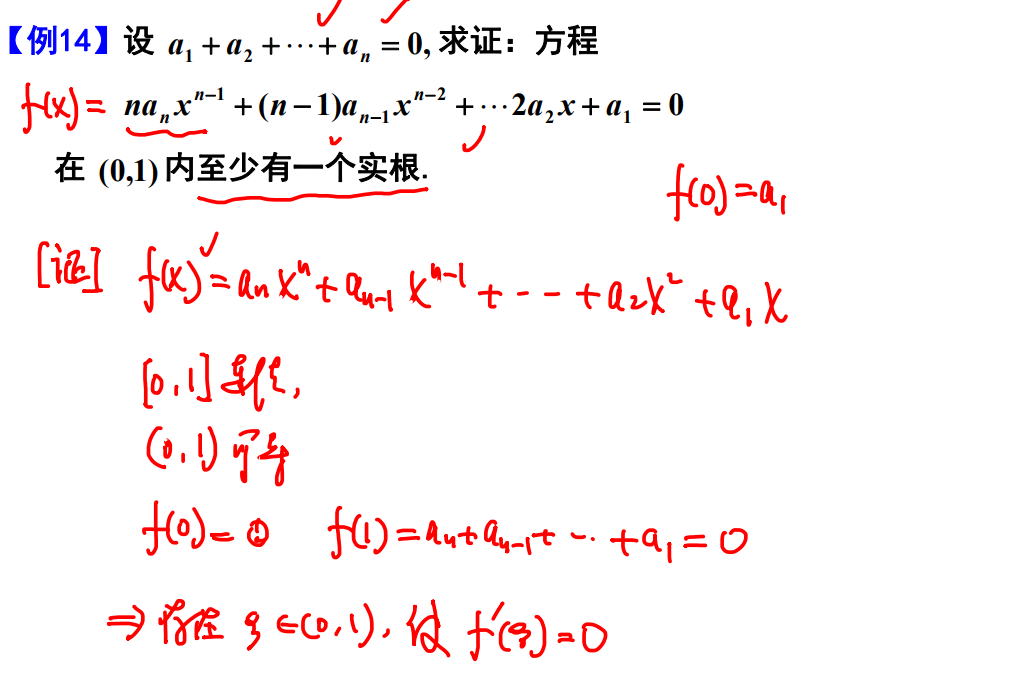 【例14】设 a₁ + a₂ + ⋯ + aₙ = 0, 求证：方程
f(x) = naₙxⁿ⁻¹ + (n−1)aₙ₋₁xⁿ⁻² + ⋯2a₂x + a₁ = 0
在 (0,1) 内至少有一个实根.
f(0) = a₁
[证] f(x) = aₙxⁿ + aₙ₋₁xⁿ⁻¹ + ⋯ + a₂x² + a₁x
[0,1] 连续,
(0,1) 可导
f(0) = 0 f(1) = aₙ + aₙ₋₁ + ⋯ + a₁ = 0
⇒ 存在 ξ ∈ (0,1), 使 f′(ξ) = 0